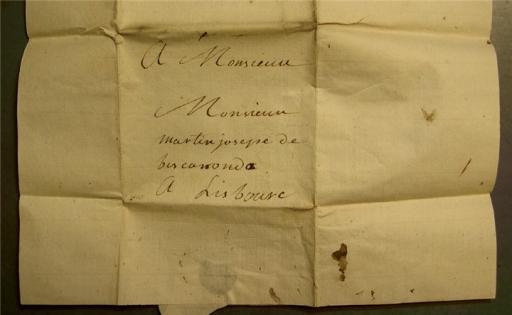 A Monsieur
Monsieur
martin josepe de
biscaronda
A Lisbone